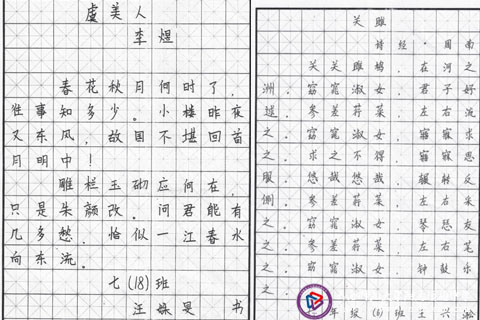 虞美人
李煜
春花秋月何时了，
往事知多少。小楼昨夜
又东风，故国不堪回首
月明中！
雕栏玉砌应何在，
只是朱颜改。问君能有
几多愁，恰似一江春水
向东流。
七(18)班
汪 旻 书
关雎
诗经·周南
关关雎鸠，在河之
洲。窈窕淑女，君子好
逑。参差荇菜，左右流
之。窈窕淑女，寤寐求
之。求之不得，寤寐思
服。悠哉悠哉，辗转反
侧。参差荇菜，左右采
之。窈窕淑女，琴瑟友
之。参差荇菜，左右笔
之。窈窕淑女，钟鼓乐
之。
年级(6)班王兴淞